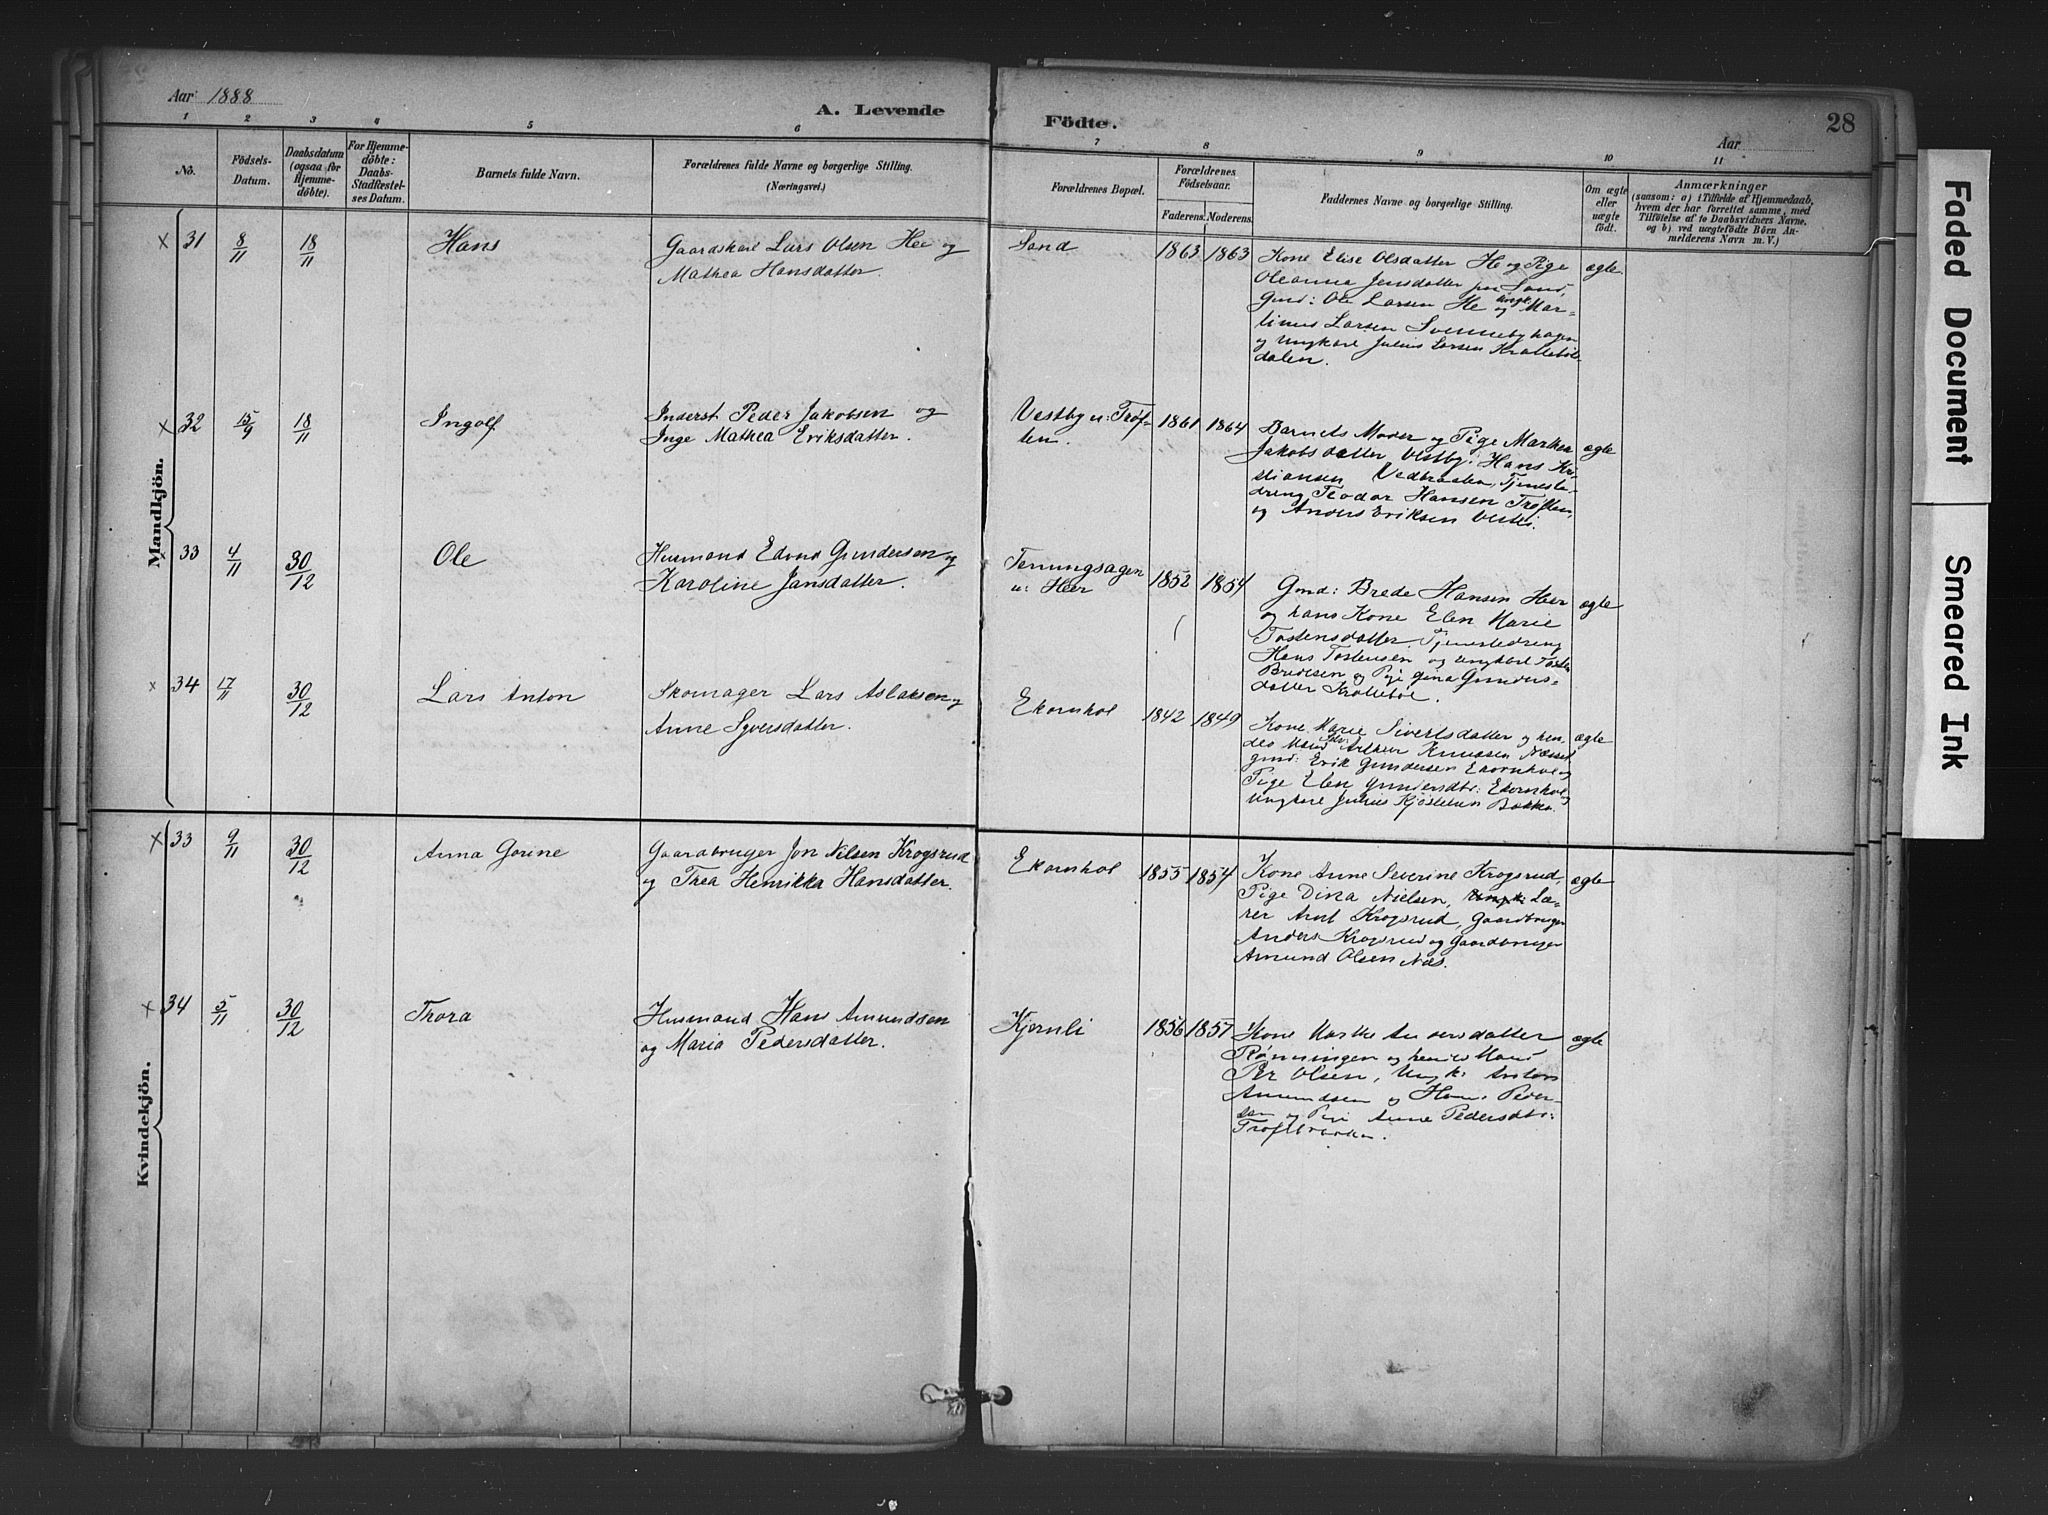 Aar 1888
A. Levende
Födte.
28
Aar
1 2 3 4 5 6 7 8 9 10 11
No.
Födsels-
Datum.
Daabsdatum
(ogsaa for
Hjemme-
döbte).
For Hjemme-
döbte:
Daabs-
Stadfæstel-
ses Datum.
Barnets fulde Navn.
Forældrenes fulde Navne og borgerlige Stilling.
(Næringsvei.)
Forældrenes Bopæl.
Forældrenes
Födselsaar.
Faderens. Moderens.
Faddernes Navne og borgerlige Stilling.
Om ægte
eller
uægte
födt.
Anmærkninger
(saasom: a) i Tilfælde af Hjemmedaab,
hvem der har forrettet samme, med
Tilföielse af to Daabsvidners Navne.
og b) ved uægtefödte Börn An-
melderens Navn m. V.)
Mandkjön.
x 31 8/11 18/11 Hans
Gaardskarl Lars Olsen Hee og
Mathea Hansdatter.
Sand 1863 1863
Kone Elise Olsdatter He og Pige
Oleanna Jensdatter paa Sand,
Gmd: Ole Larsen He og Mar-
tinus Larsen Svennebyhagen
og Ungkarl Julius Larsen Krollebøl
dalen.
ægte
x 32 15/9 18/11 Ingolf
Inderst Peder Jakobsen og
Inge Mathea Eriksdatter.
Vestby u: Trøf-
ten. 1861 1864
Barnets Moder og Pige Marthea
Jakobsdatter Vestby, Hans Kri-
stiansen Vedbraaten, Tjeneste-
dreng Teodor Hansen Trøften,
og Anders Eriksen Vestbi.
ægte
x 33 4/11 30/12 Ole
Husmand Edvard Gundersen og
Karoline Jansdatter.
u: Heer 1852 1854
Gmd: Brede Hansen Heer
og hans Kone Elen Marie
Tostensdatter, Tjenestedreng
Hans Tostensen og Ungkarl Tosten
Bredesen og Pige Gina Gunders-
datter Krollebøl.
ægte
x 34 17/11 30/12 Lars Anton
Skomager Lars Aslaksen og
Anne Syversdatter.
Ekornhol 1842 1849
Kone Marie Sivertsdatter og hen-
des Mand Arthur Knudsen Næsset
gmd: Erik Gundersen Ekornhol og
Pige Elen Gundersdtr: Ekornhol og
Ungkarl Julius Kjøstelsen Bakke.
ægte
Kvindekjön.
x 33 9/11 30/12 Anna Gorine
Gaardbruger Jon Nilsen Krogsrud
og Thea Henrikka Hansdatter.
Ekornhol 1855 1854
Kone Anne Severine Krogsrud,
Pige Dina Nielsen, Læ-
rer Arnt Krogsrud, Gaardbruger
Anders Krogsrud og Gaardbruger
Amund Olsen Næs.
ægte
x 34 5/11 30/12 Thora
Husmand Hans Amundsen
og Maria Pedersdatter.
Kjernli 1856 1857
Kone Marthe Andersdatter
Rønningen og hendes Mand
Per Olsen, Ungk: Anton
Amundsen og Hans Peder-
sen og Pige Anne Pedersdtr:
Trøftbraaten.
ægte
Faded Document
Smeared Ink